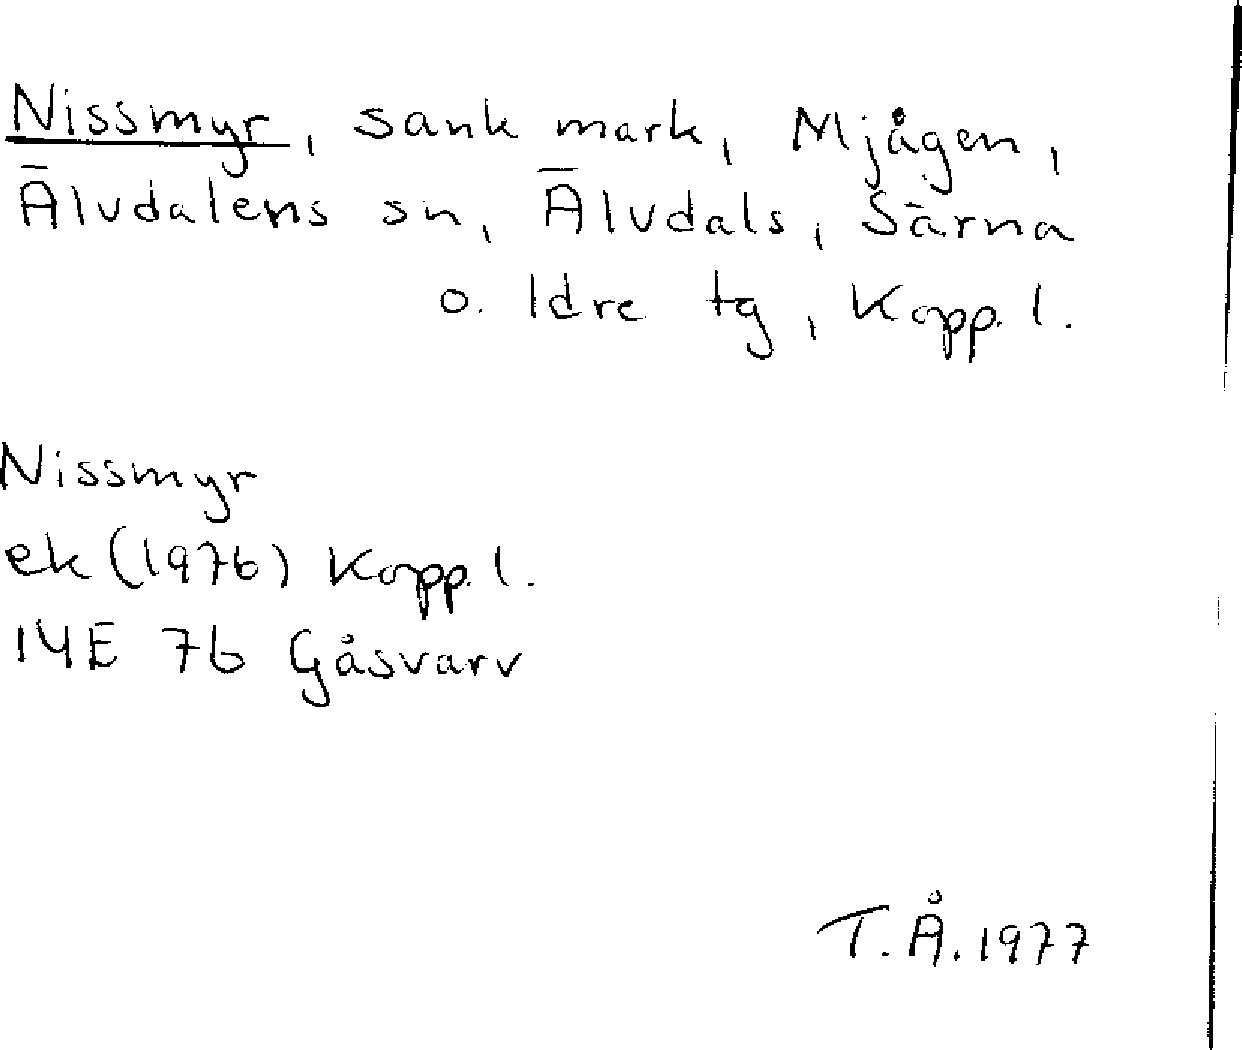 Nissmyr, sank mark, Mjågen,
Älvdalens sn, Älvdals, Särna
o. Idre tg, Kopp. l.
Nissmyr
ek (1976) Kopp. l.
14E 7b Gåsvarv
T.Å. 1977